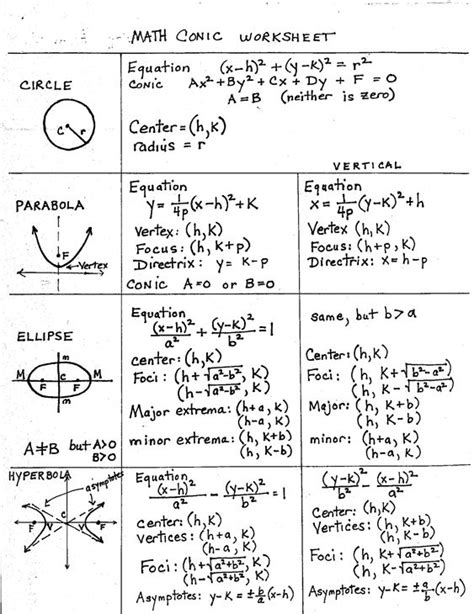 MATH CONIC WORKSHEET
CIRCLE
C r
Equation (x-h)² + (y-k)² = r²
CONIC Ax² + By² + Cx + Dy + F = 0
A = B (neither is zero)
Center = (h,k)
radius = r
VERTICAL
PARABOLA
F
Vertex
Equation
y = 1/4p (x-h)² + K
Vertex: (h,k)
Focus: (h, k+p)
Directrix: y = k-p
CONIC A=0 or B=0
Equation
x = 1/4p (y-k)² + h
Vertex (h, K)
Focus: (h+p, K)
Directrix: x = h-p
ELLIPSE
m
M F C F M
m
A≠B but A>0
B>0
Equation
(x-h)²/a² + (y-k)²/b² = 1
center: (h,k)
Foci: (h+√a²-b², K)
(h-√a²-b², K)
Major extrema: (h+a, K)
(h-a, K)
minor extrema: (h, K+b)
(h, K-b)
same, but b>a
Center: (h,k)
Foci: (h, K+√b²-a²)
(h, K-√b²-a²)
Major: (h, K+b)
(h, K-b)
minor: (h+a, K)
(h-a, K)
HYPERBOLA
asymptotes
F V C V F
Equation
(x-h)²/a² - (y-k)²/b² = 1
center: (h,k)
vertices: (h+a, K)
(h-a, K)
Foci: (h+√a²+b², K)
(h-√a²+b², K)
Asymptotes: y-K = ± b/a (x-h)
(y-k)²/b² - (x-h)²/a²
Center: (h,k)
Vertices: (h, K+b)
(h, K-b)
Foci: (h, K+√a²+b²)
(h, K-√a²+b²)
Asymptotes: y-K = ± b/a (x-h)